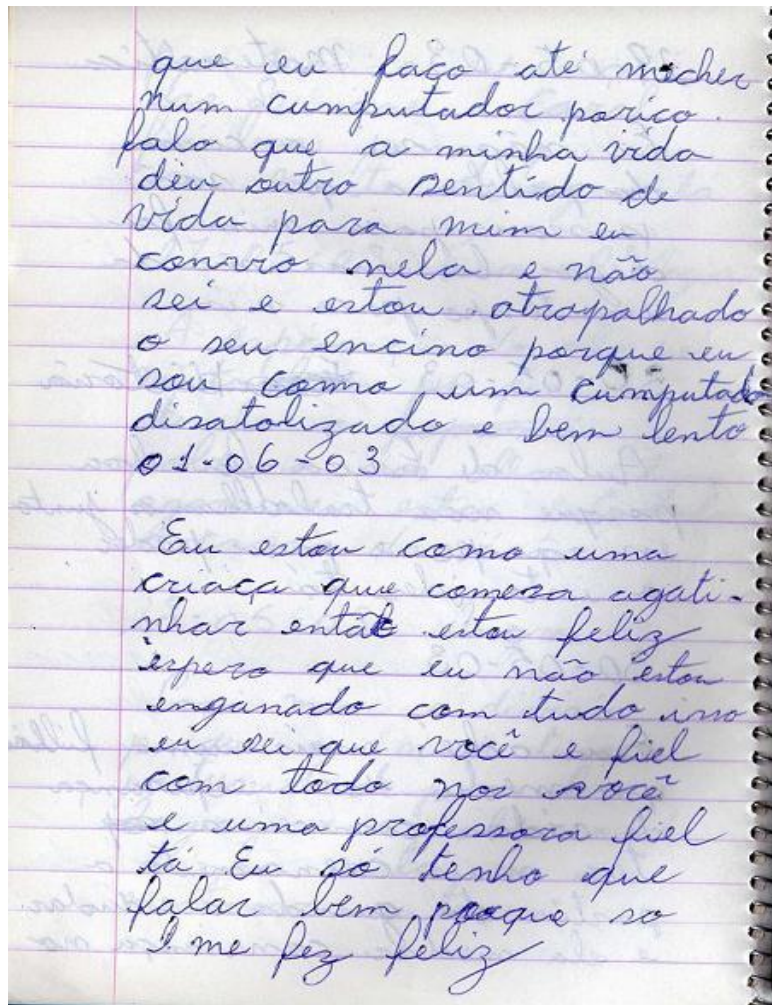 que eu faço até mecher
num cumputador pariço.
falo que a minha vida
deu outro sentido de
vida para mim eu
convivo nela e não
sei e estou atrapalhado
o seu encino porque eu
sou como um cumputado
disatolizado e bem lento
01-06-03
Eu estou como uma
criaça que comesa agati-
nhar entaõ estou feliz
espero que eu não estou
enganado com tudo isso
eu sei que você e fiel
com todo nos você
e uma professora fiel
tá Eu só tenho que
falar bem porque so
me fez feliz